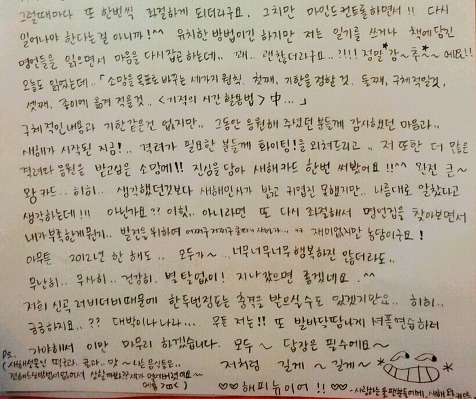 그럴때마다 또 한번씩 좌절하게 되더라구요. 그치만 마인드컨트롤하면서!! 다시
일어나야 한다는걸 아니까!^^ 유치한 방법이긴 하지만 저는 일기를 쓰거나 책에담긴
명언들을 읽으면서 마음을 다시잡곤하는데.. 꽤.. 괜찮더라구요..?!!! 정말*강~추*~ 에요!!
오늘도 읽었는데.. 「소망을목표로 바꾸는 세가지 원칙. 첫째, 기한을 정할 것. 둘째, 구체적일것,
셋째, 종이에 옮겨 적을것.. <기적의 시간 활용법> 中...」
구체적인내용과 기한같은건 없지만.. 그동안 응원해 주셨던분들께 감사했던 마음과..
새해가 시작된 지금!.. 격려가 필요한 분들께 화이팅!을 외쳐드리고.. 저 또한 더 많은
격려와 응원을 받고싶은 소망에!! 진심을 담아 새해카드 한번 써봤어요!!^^ 완전 큰~
왕 카드.. 히히.. 생각했던것보다 새해인사가 밝고 귀엽진 못했지만.. 나름대로 알찼다고
생각하는데!!! 아닌가요?? 이힛.. 아니라면 또 다시 좌절해서 명언집을 찾아보면서
내가부족한게뭔지.. 발전을위하여 ㅋㅋ 재미없지만 농담이구요!
아무튼 2012년 한 해도.. 모두가~ 너무너무너무행복하진 않더라도..
무난히.. 무사히.. 건강히. 별 탈없이! 지나갔으면 좋겠네요.^^
저희 신곡 러비더비때문에 한두번정도는 충격을 받으실수도 있겠지만요.. 히히..
궁금하지요..?? 대박이나나라... 무튼 저는!! 또 발바닥땀나게 셔플연습하러
가야해서 이만 마무리 하겠습니다. 모두~ 답장은 필수에요~
저처럼 길게~ 길게~
Ps.
(새해선물인 떡국과.. 맛~나는음식들은..
♡♡해피뉴이어!!♡♡